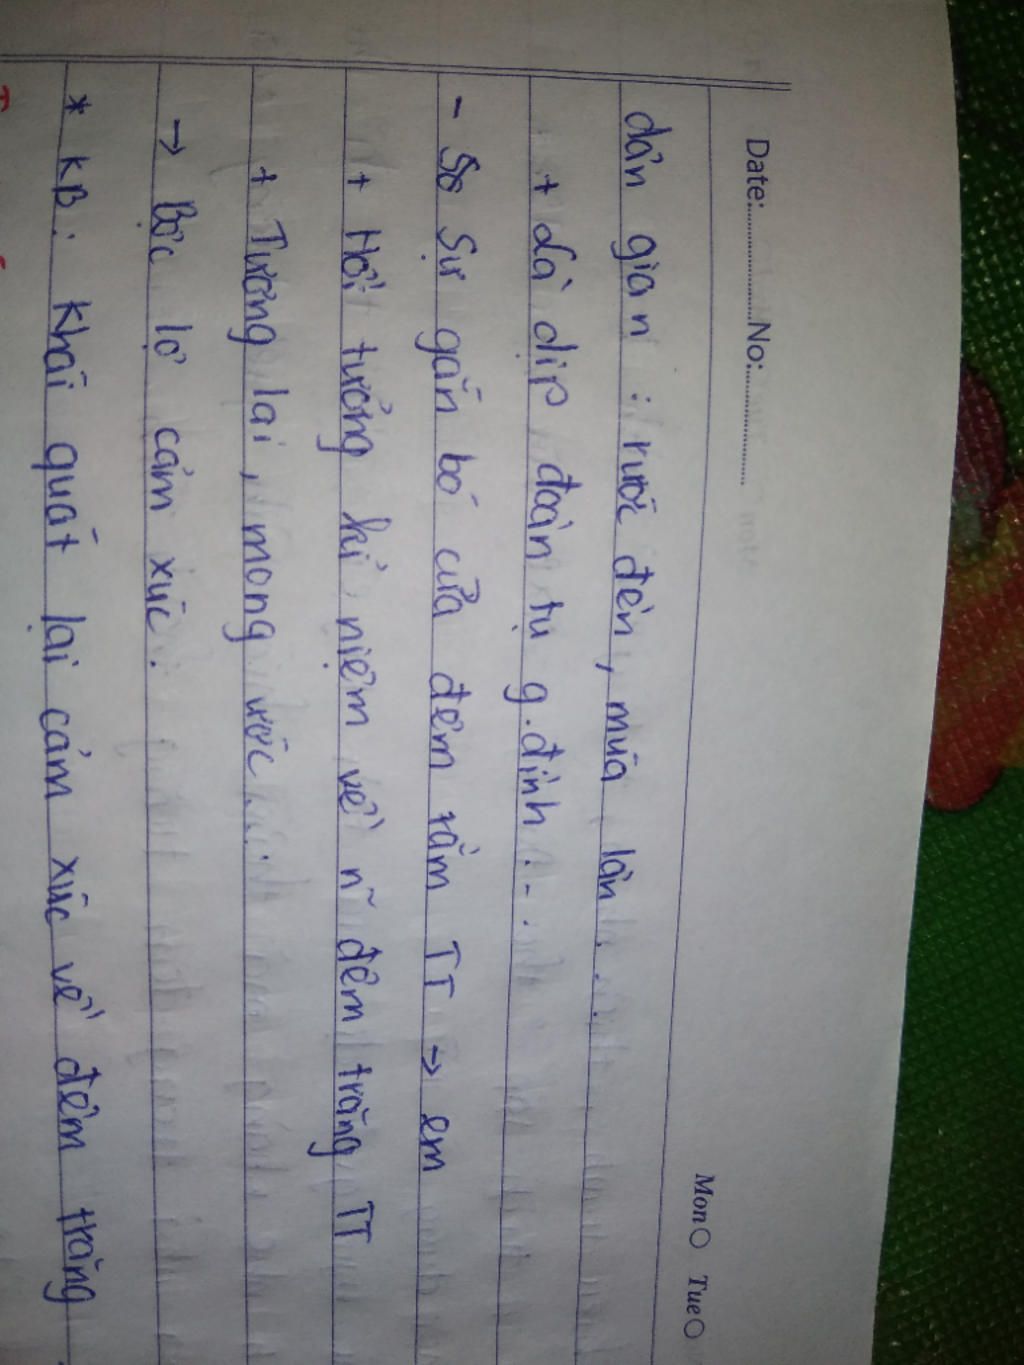 Date:............No:............ Mon Tue
dân gian : rước đèn, múa lân...
+ Là dịp đoàn tụ g.đình...
- Sự gắn bó của đêm rằm TT → em
+ Hồi tưởng kỉ niệm về n~ đêm trăng TT
+ Tương lai, mong ước...
→ Bộc lộ cảm xúc.
* KB: Khái quát lại cảm xúc về đêm trăng